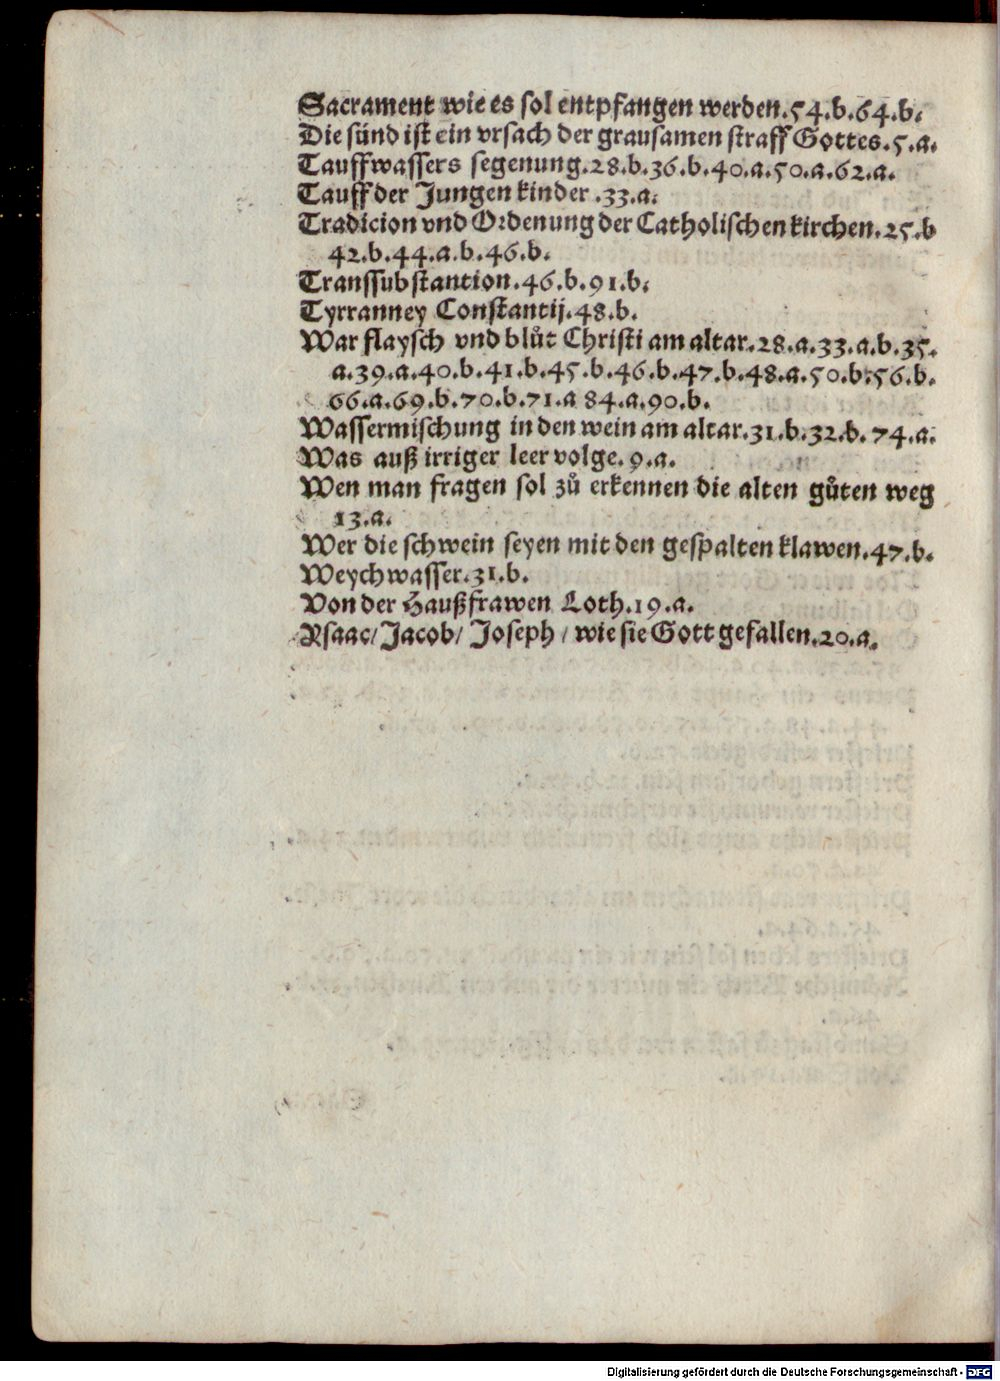 Sacrament wie es sol entpfangen werden.54.b.64.b.
Die sünd ist ein vrsach der grausamen straff Gottes.5.a.
Tauffwassers segenung.28.b.36.b.40.a.50.a.62.a.
Tauff der Jungen kinder .33.a.
Tradicion vnd Ordenung der Catholischen kirchen.25.b
42.b.44.a.b.46.b.
Transsubstantion.46.b.91.b.
Tyrranney Constantij.48.b.
War flaysch vnd blůt Christi am altar.28.a.33.a.b.35.
a.39.a.40.b.41.b.45.b.46.b.47.b.48.a.50.b.56.b.
66.a.69.b.70.b.71.a 84.a.90.b.
Wassermischung in den wein am altar.31.b.32.b. 74.a.
Was auß irriger leer volge. 9.a.
Wen man fragen sol zů erkennen die alten gůten weg
13.a.
Wer die schwein seyen mit den gespalten klawen.47.b.
Weychwasser.31.b.
Von der Haußfrawen Loth.19.a.
Ysaac/ Jacob/ Joseph / wie sie Gott gefallen.20.a.
Digitalisierung gefördert durch die Deutsche Forschungsgemeinschaft - DFG